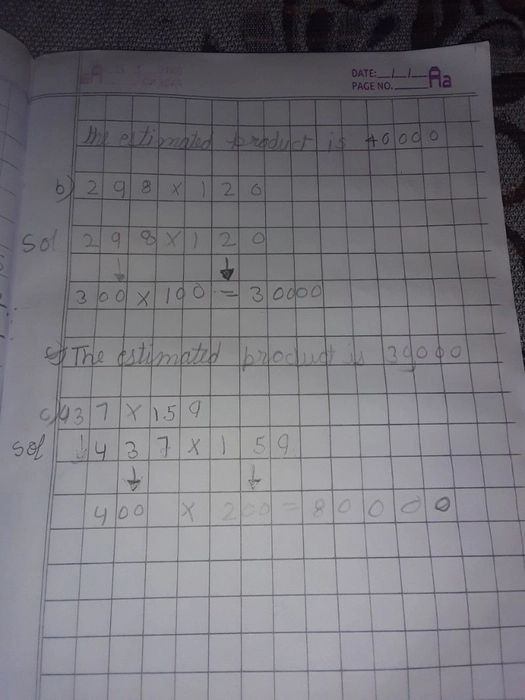 DATE: / / Aa
PAGE NO.
The estimated product is 40000
b) 298 × 120
Sol 298 × 120
300 × 100 = 30000
The estimated product is 30000
c) 437 × 159
Sol 437 × 159
400 × 200 = 80000